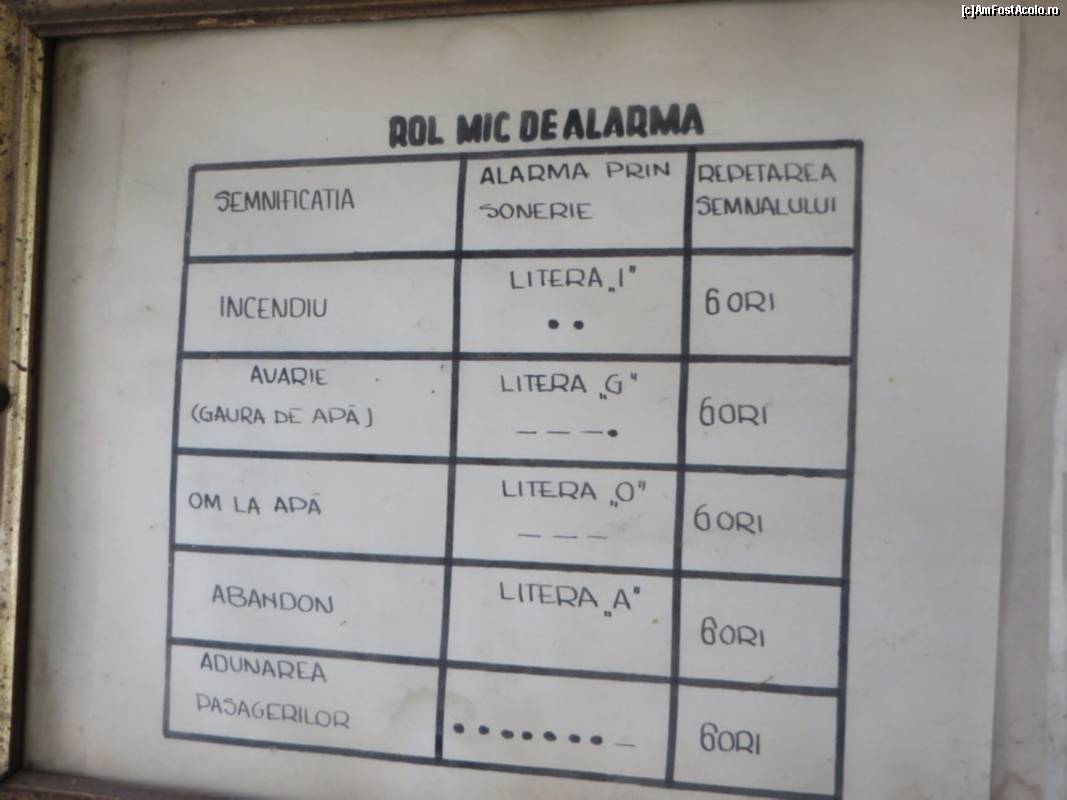 [c]AmFostAcolo.ro
ROL MIC DE ALARMA
SEMNIFICATIA
ALARMA PRIN
SONERIE
REPETAREA
SEMNALULUI
INCENDIU
LITERA „I"
• •
6 ORI
AVARIE
(GAURA DE APĂ)
LITERA „G"
_ _ _ •
6 ORI
OM LA APĂ
LITERA „O"
_ _ _
6 ORI
ABANDON
LITERA „A"
6 ORI
ADUNAREA
PASAGERILOR
• • • • • • • _
6 ORI